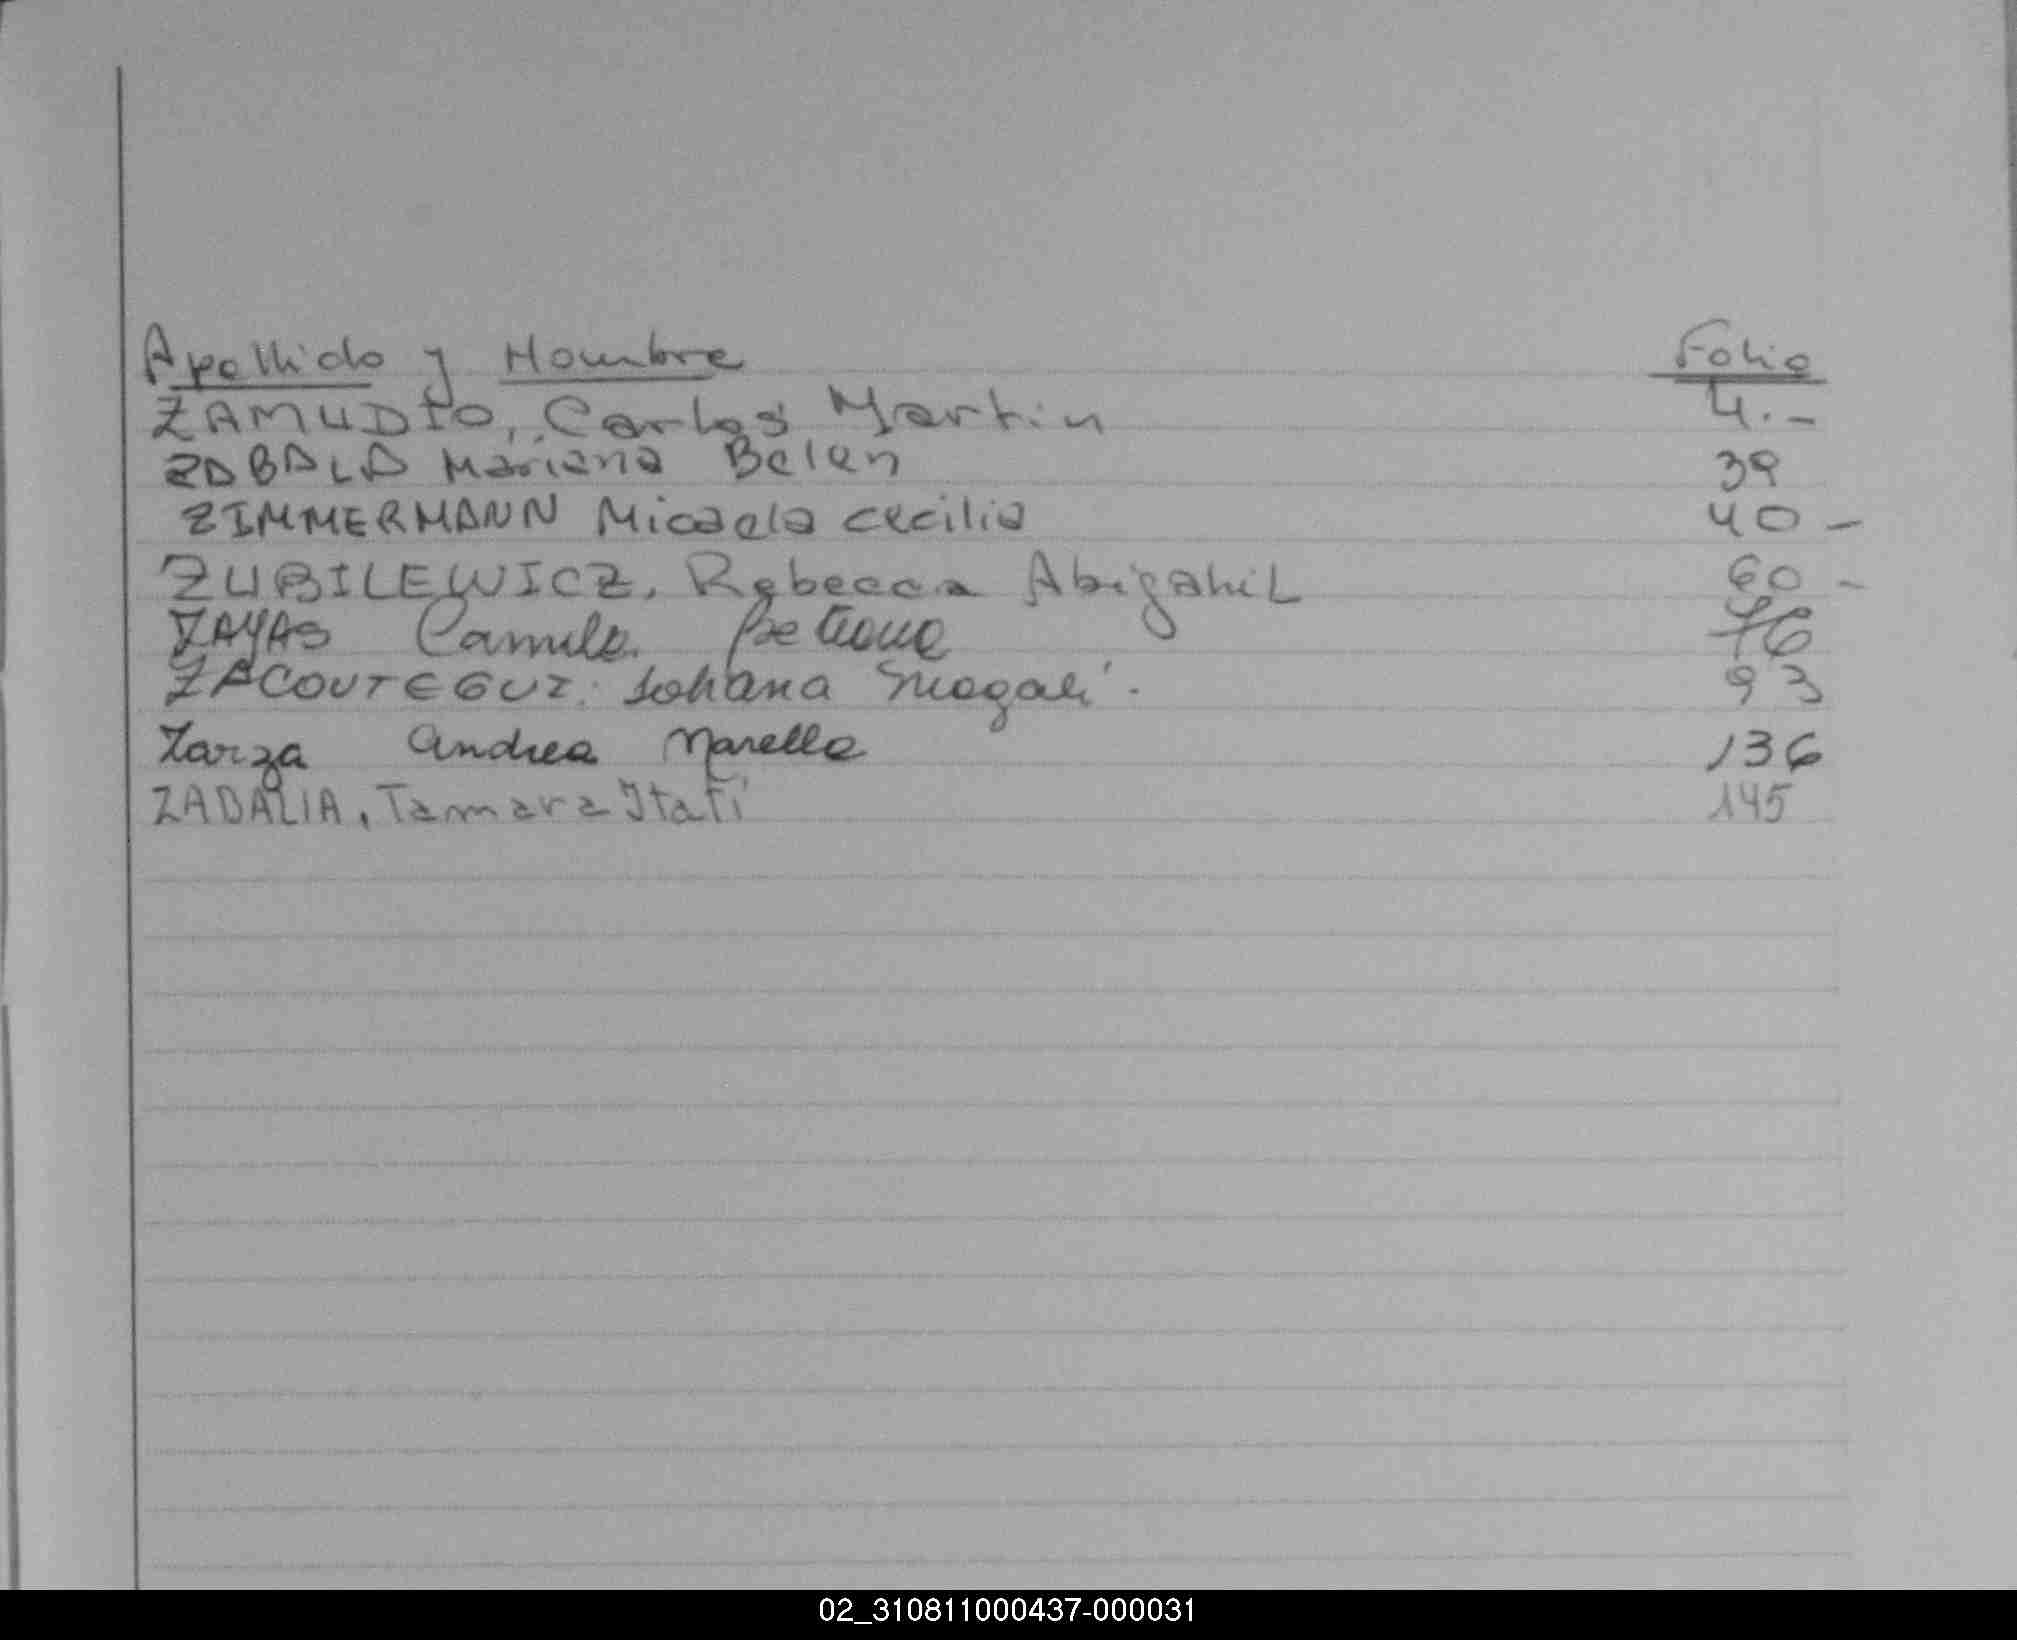 Apellido y Nombre Folio
ZAMUDIO, Carlos Martin 4.-
ZABALA Mariana Belen 39
ZIMMERMANN Micaela Cecilia 40 -
ZUBILEWICZ, Rebecca Abigahil 60 -
ZAYAS Camila 76
ZACOUTEGUI. Johana Magali. 93
Zarza Andrea Mariella 136
ZABALIA, Tamara Itatí 145
02_310811000437-000031